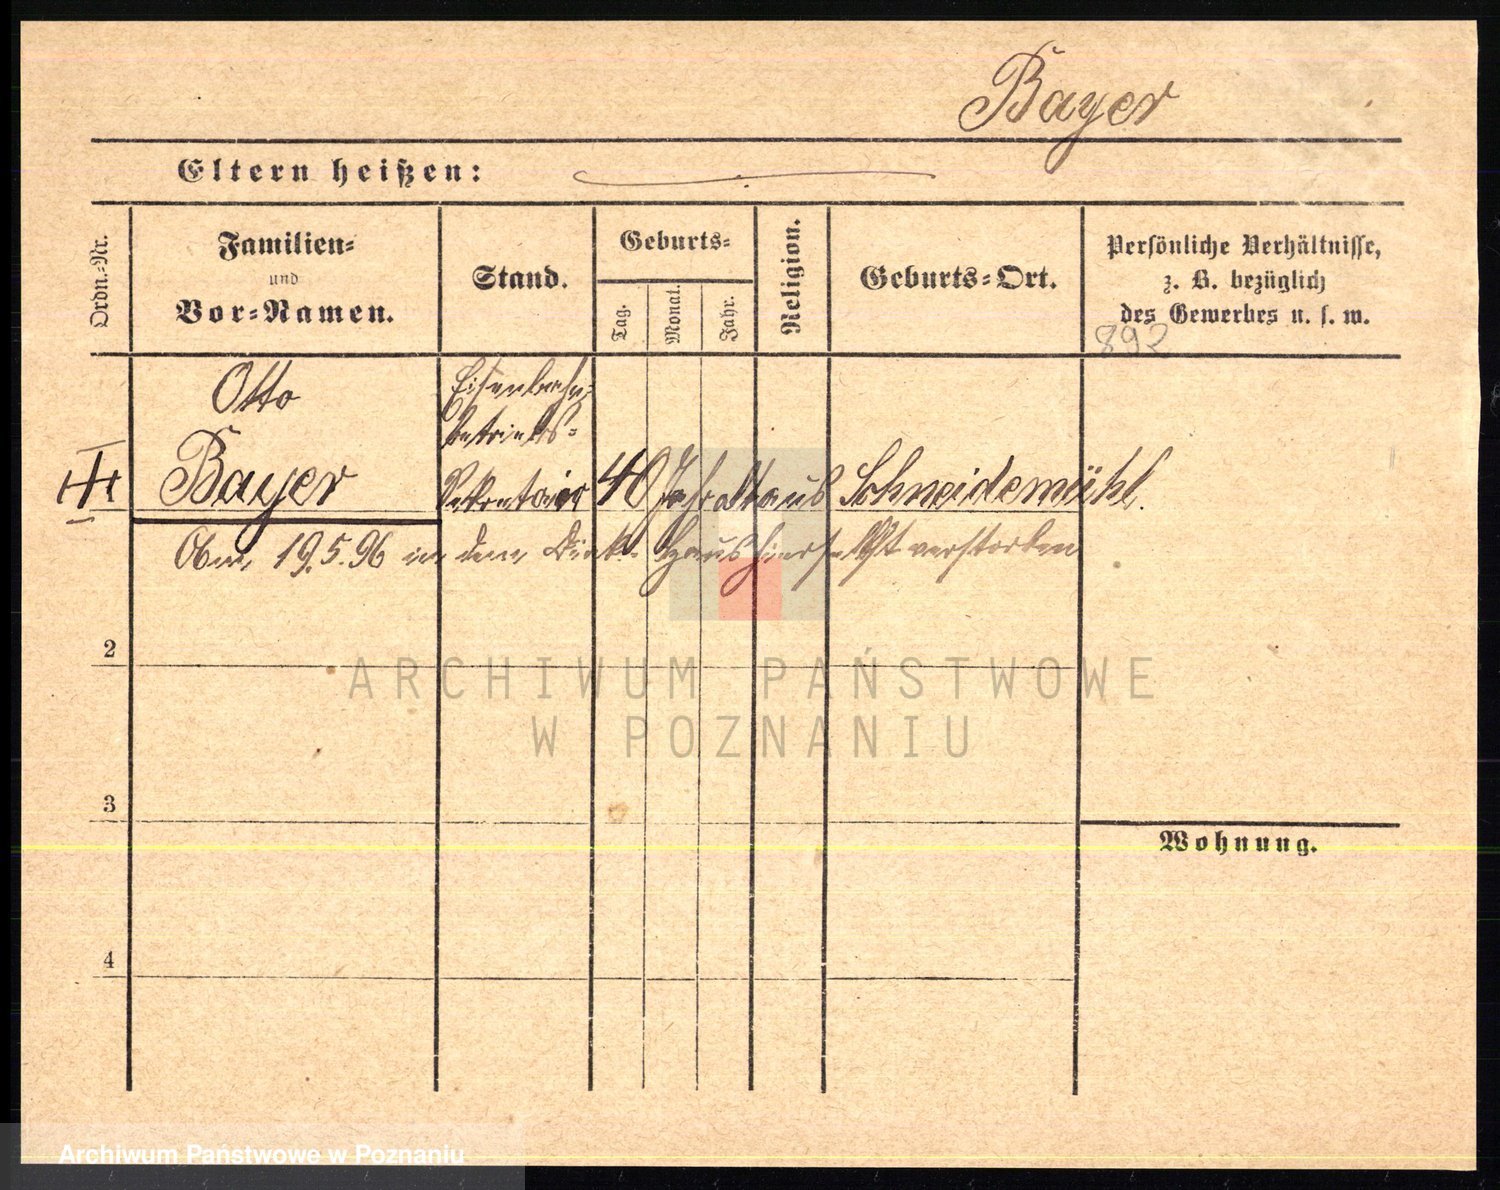 Bayer
Eltern heißen:
Ordn.-Nr.
Familien-
und
Vor-Namen.
Stand.
Geburts-
Tag.
Monat.
Jahr.
Religion.
Geburts-Ort.
Persönliche Verhältnisse,
z. B. bezüglich
des Gewerbes u. s. w.
892
Otto
Bayer
Eisenbahn-
Betriebs-
Sekretair
40 Jahr alt aus Schneidemühl.
am 19.5.96 in dem Diak. Haus hierselbst verstorben
2
3
4
Wohnung.
ARCHIWUM PAŃSTWOWE
W POZNANIU
Archiwum Państwowe w Poznaniu